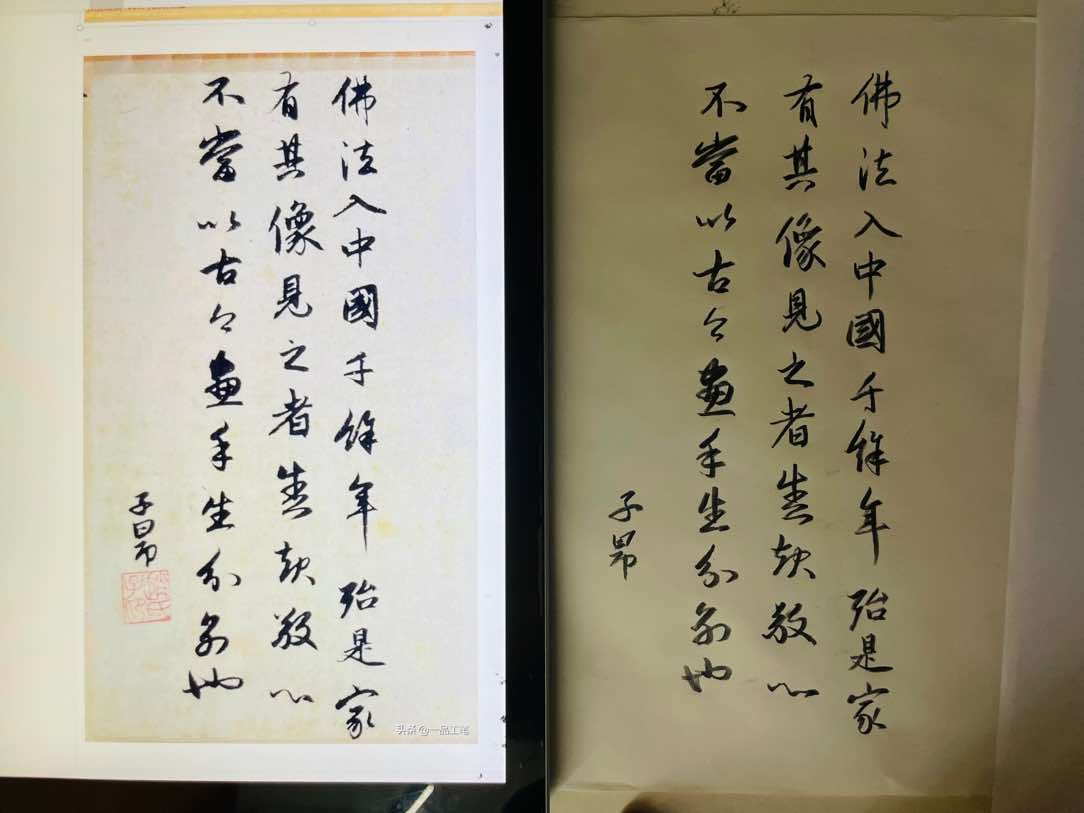 佛法入中國千餘年殆是家
有其像見之者盡起敬心
不當以古今畫手生分別也
子昂
趙氏子昂
头条 @一品工笔
佛法入中國千餘年殆是家
有其像見之者盡起敬心
不當以古今畫手生分別也
子昂